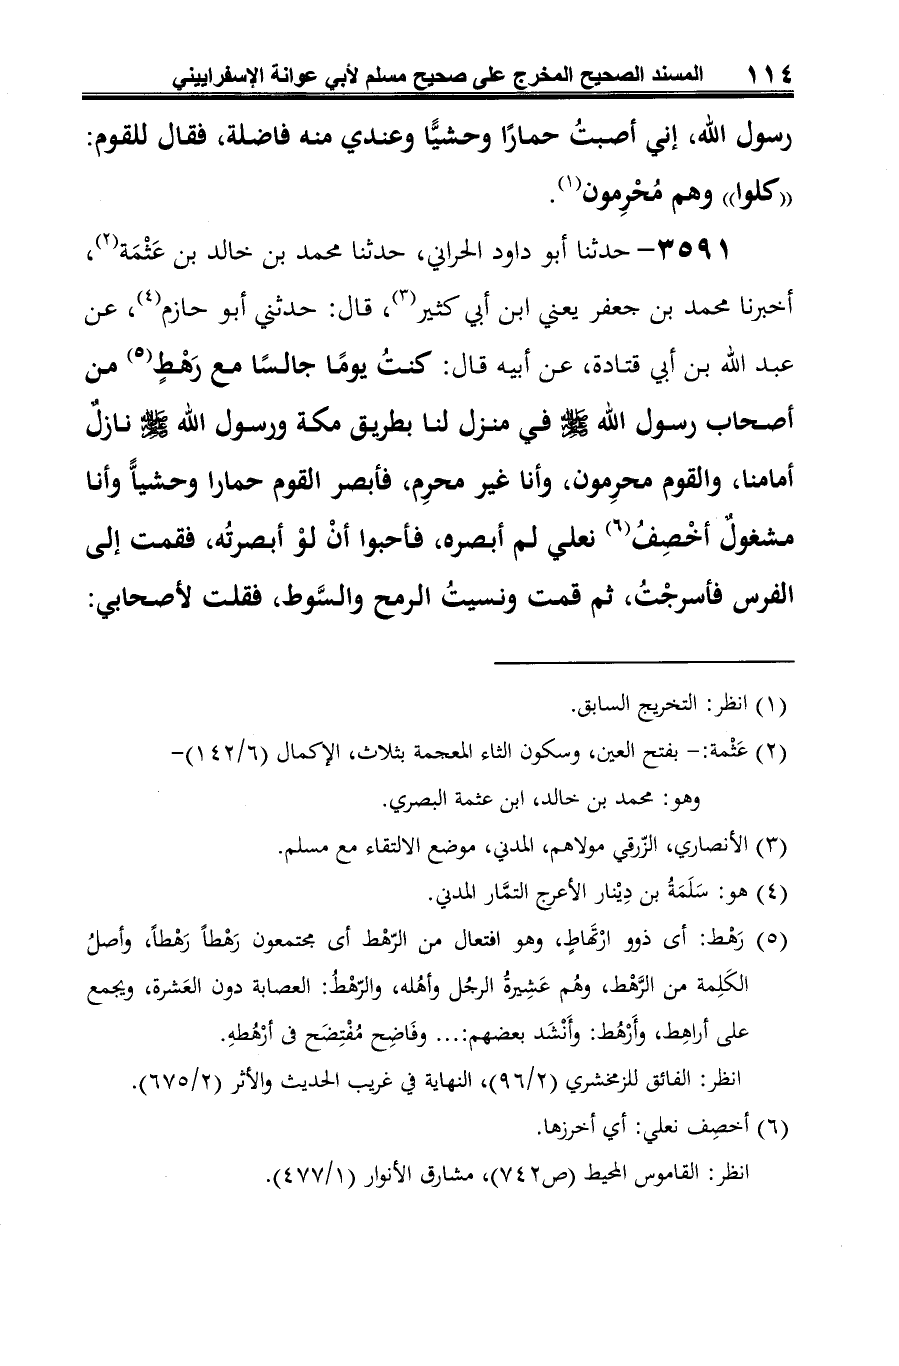 ١١٤ المسند الصحيح المخرج على صحيح مسلم لأبي عوانة الإسفراييني
رسول الله، إني أصبتُ حمارًا وحشيًّا وعندي منه فاضلة، فقال للقوم:
((كلوا)) وهم مُحْرِمون(١).
٣٥٩١- حدثنا أبو داود الحراني، حدثنا محمد بن خالد بن عَثْمَة(٢)،
أخبرنا محمد بن جعفر يعني ابن أبي كثير(٣)، قال: حدثني أبو حازم(٤)، عن
عبد الله بن أبي قتادة، عن أبيه قال: كنتُ يومًا جالسًا مع رَهْطٍ(٥) من
أصحاب رسول الله ﷺ في منزل لنا بطريق مكة ورسول الله ﷺ نازلٌ
أمامنا، والقوم محرِمون، وأنا غير محرِم، فأبصر القوم حمارا وحشياًّ وأنا
مشغولٌ أخْصِفُ(٦) نعلي لم أبصره، فأحبوا أنْ لوْ أبصرتُه، فقمت إلى
الفرس فأسرجْتُ، ثم قمت ونسيتُ الرمح والسَّوط، فقلت لأصحابي:
(١) انظر: التخريج السابق.
(٢) عَثْمة:- بفتح العين، وسكون الثاء المعجمة بثلاث، الإكمال (١٤٢/٦)-
وهو: محمد بن خالد، ابن عثمة البصري.
(٣) الأنصاري، الزّرقي مولاهم، المدني، موضع الالتقاء مع مسلم.
(٤) هو: سَلَمَةُ بن دِيْنار الأعرج التمَّار المدني.
(٥) رَهْط: أى ذوو ارْتَهَاطٍ، وهو افتعال من الرّهْط أى مجتمعون رَهْطاً رَهْطاً، وأصلُ
الكَلِمة من الرَّهْط، وهُم عَشِيرةُ الرجُل وأهْله، والرّهْطُ: العصابة دون العَشرة، ويجمع
على أراهِط، وأَرْهُط: وأَنْشَد بعضهم:... وفَاضِح مُفْتِضَح فى أرْهُطهِ.
انظر: الفائق للزمخشري (٩٦/٢)، النهاية في غريب الحديث والأثر (٦٧٥/٢).
(٦) أخصِف نعلي: أي أخرزها.
انظر: القاموس المحيط (ص٧٤٢)، مشارق الأنوار (٤٧٧/١).